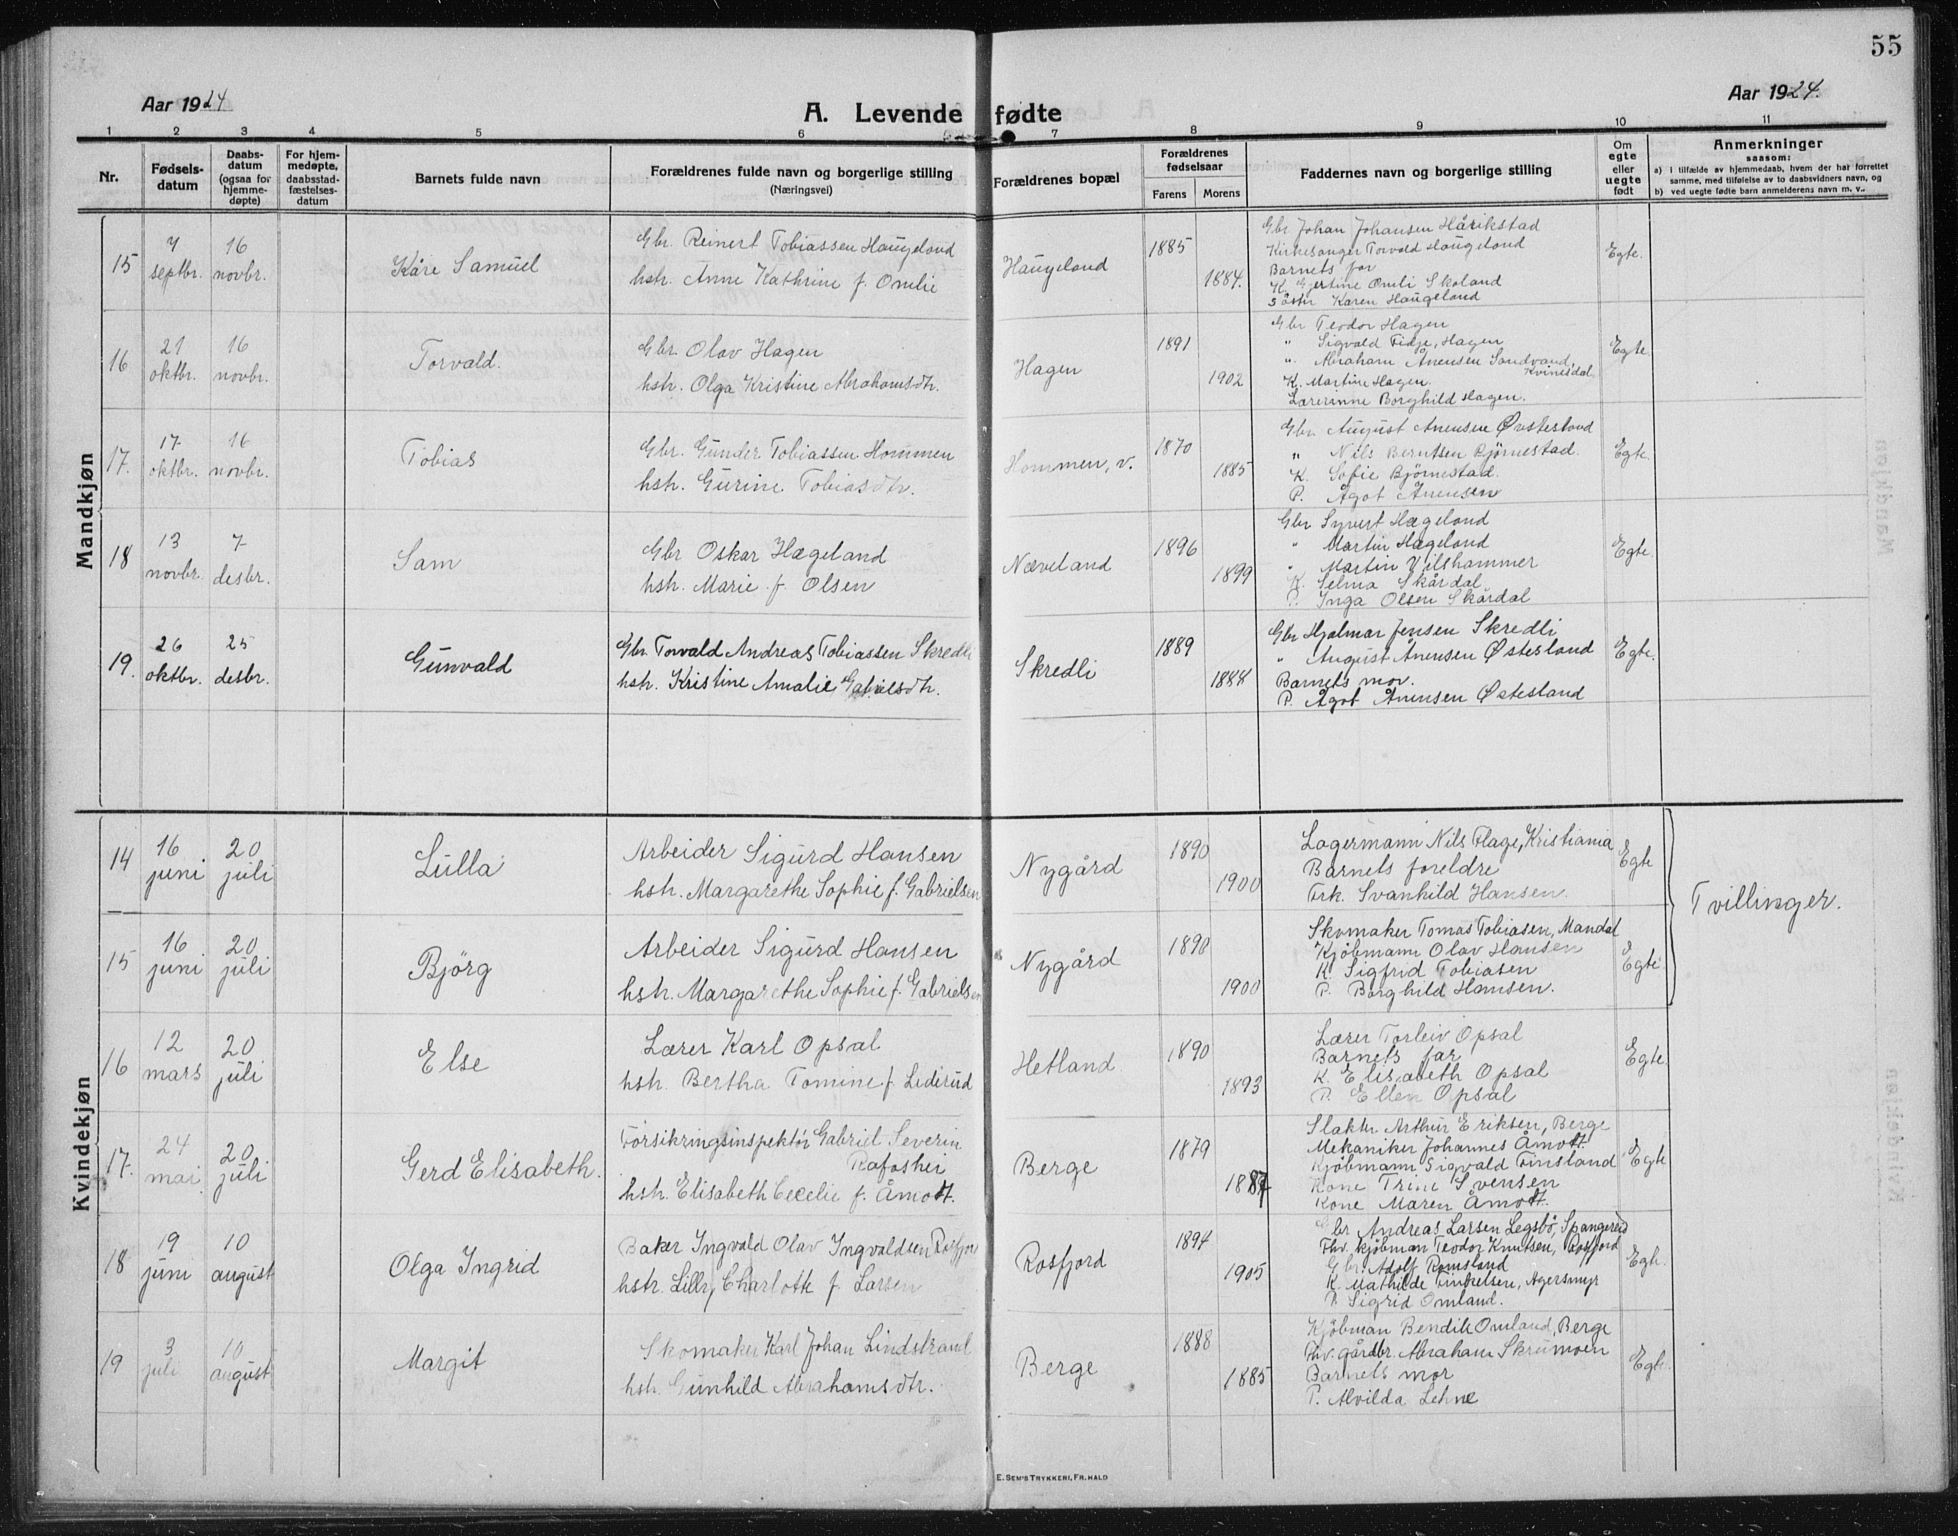 55
Aar 1924
A. Levende fødte
Aar 1924.
1 2 3 4 5 6 7 8 9 10 11
Nr.
Fødsels-
datum
Daabs-
datum
(ogsaa for
hjemme-
døpte)
For hjem-
medøpte,
daabsstad-
fæstelses-
datum
Barnets fulde navn
Forældrenes fulde navn og borgerlige stilling
(Næringsvei)
Forældrenes bopæl
Forældrenes
fødselsaar
Farens Morens
Faddernes navn og borgerlige stilling
Om
egte
eller
uegte
født
Anmerkninger
saasom:
a) i tilfælde av hjemmedaab, hvem der har forrettet
samme, med tilføielse av to daabsvidners navn, og
b) ved uegte fødte barn anmelderens navn m. v..
Mandkjøn
15
7
septbr.
16
novbr.
Kåre Samuel
Gbr. Reinert Tobiassen Haugeland
hstr. Anne Kathrine f. Omlie
Haugeland
1885
1884.
Gbr Johan Johansen Hårikstad
Kirkesanger Torvald Haugeland
Barnets far
K. Gjertine Omli Skoland
Søstr Karen Haugeland
Egte.
16
21
oktbr.
16
novbr.
Torvald.
Gbr. Olav Hagen
hstr. Olga Kristine Abrahamsdtr.
Hagen
1891
1902
Gbr Teodor Hagen
" Sigvald Tidje, Hagen
" Abraham Ånensen Sandvand,
Kvinesdal
K. Martine Hagen.
Lærerinne Borghild Hagen.
Egte.
17.
17
oktbr.
16
novbr.
Tobias
Gbr. Gunder Tobiassen Hommen
hstr. Gurine Tobiasdtr.
Hommen, v.
1870
1885
Gbr August Anensen Øvstesland
" Nils Berntsen Bjørnestad.
K. Sofie Bjørnestad.
P. Ågot Ånensen
Egte.
18
13
novbr.
7
desbr.
Sam
Gbr Oskar Hægeland
hstr. Marie f. Olsen
Næveland
1896
1899
Gbr Syvert Hægeland
" Martin Hægeland
" Martin Vilshammer
K. Selma Skårdal
P. Inga Olsen Skårdal
Egte.
19.
26
oktbr.
25
desbr.
Gunvald
Gbr. Torvald Andreas Tobiassen Skredli
hstr. Kristine Amalie Gabrielsdtr.
Skredli
1889
1888
Gbr Hjalmar Jensen Skredli
" August Ånensen Østesland
Barnets mor.
P. Ågot Ånensen Østesland
Egte.
Kvindekjøn
14
16
juni
20
juli
Lulla
Arbeider Sigurd Hansen
hstr. Margarethe Sophie f. Gabrielsen
Nygård
1890
1900
Lagermann Nils Flage, Kristiania
Barnets foreldre
Frk. Svanhild Hansen.
Egte
Tvillinger.
15
16
juni
20
juli
Bjørg
Arbeider Sigurd Hansen
hstr. Margarethe Sophie f. Gabrielsen
Nygård
1890
1900
Skomaker Tomas Tobiasen, Mandal
Kjøbmann Olav Hansen
K. Sigfrid Tobiasen
P. Borghild Hansen.
Egte
16
12
mars
20
juli
Else
Lærer Karl Opsal
hstr. Bertha Tomine f. Liderud
Hetland
1890
1893
Lærer Torleiv Opsal
Barnets far
K. Elisabeth Opsal
P. Ellen Opsal
Egte
17.
24
mai
20
juli
Gerd Elisabeth.
Forsikringsinspektør Gabriel Severin
Rafoshei
hstr. Elisabeth Cecelie f. Åmott.
Berge
1879
1887
Slaktr Arthur Eriksen, Berge
Mekaniker Johannes Åmott
Kjøbmann Sigvald Finsland
Kone Trine Svensen
Kone Maren Åmott.
Egte
18
19
juni
10
august
Olga Ingrid
Baker Ingvald Olav Ingvaldsen Rosfjord
hstr. Lilly Charlotte f. Larsen
Rosfjord
1894
1905
Gbr Andreas Larsen Legsbø, Spangereid
Fhv. kjøbman Teodor Knutsen, Rosfjord
Gbr. Adolf Romsland
K. Mathilde Tinkelsen, Agersmyr
P. Sigrid Omland.
Egte.
19
3
juli
10
august
Margit
Skomaker Karl Johan Lindstrand
hstr. Gunhild Abrahamsdtr.
Berge
1888
1885
Kjøbman Bendik Omland, Berge
Fhv. gårdbr. Abraham Skrumoen
Barnets mor
P. Alvilda Lehne
Egte.
E. Sem's Trykkeri, Fr.hald